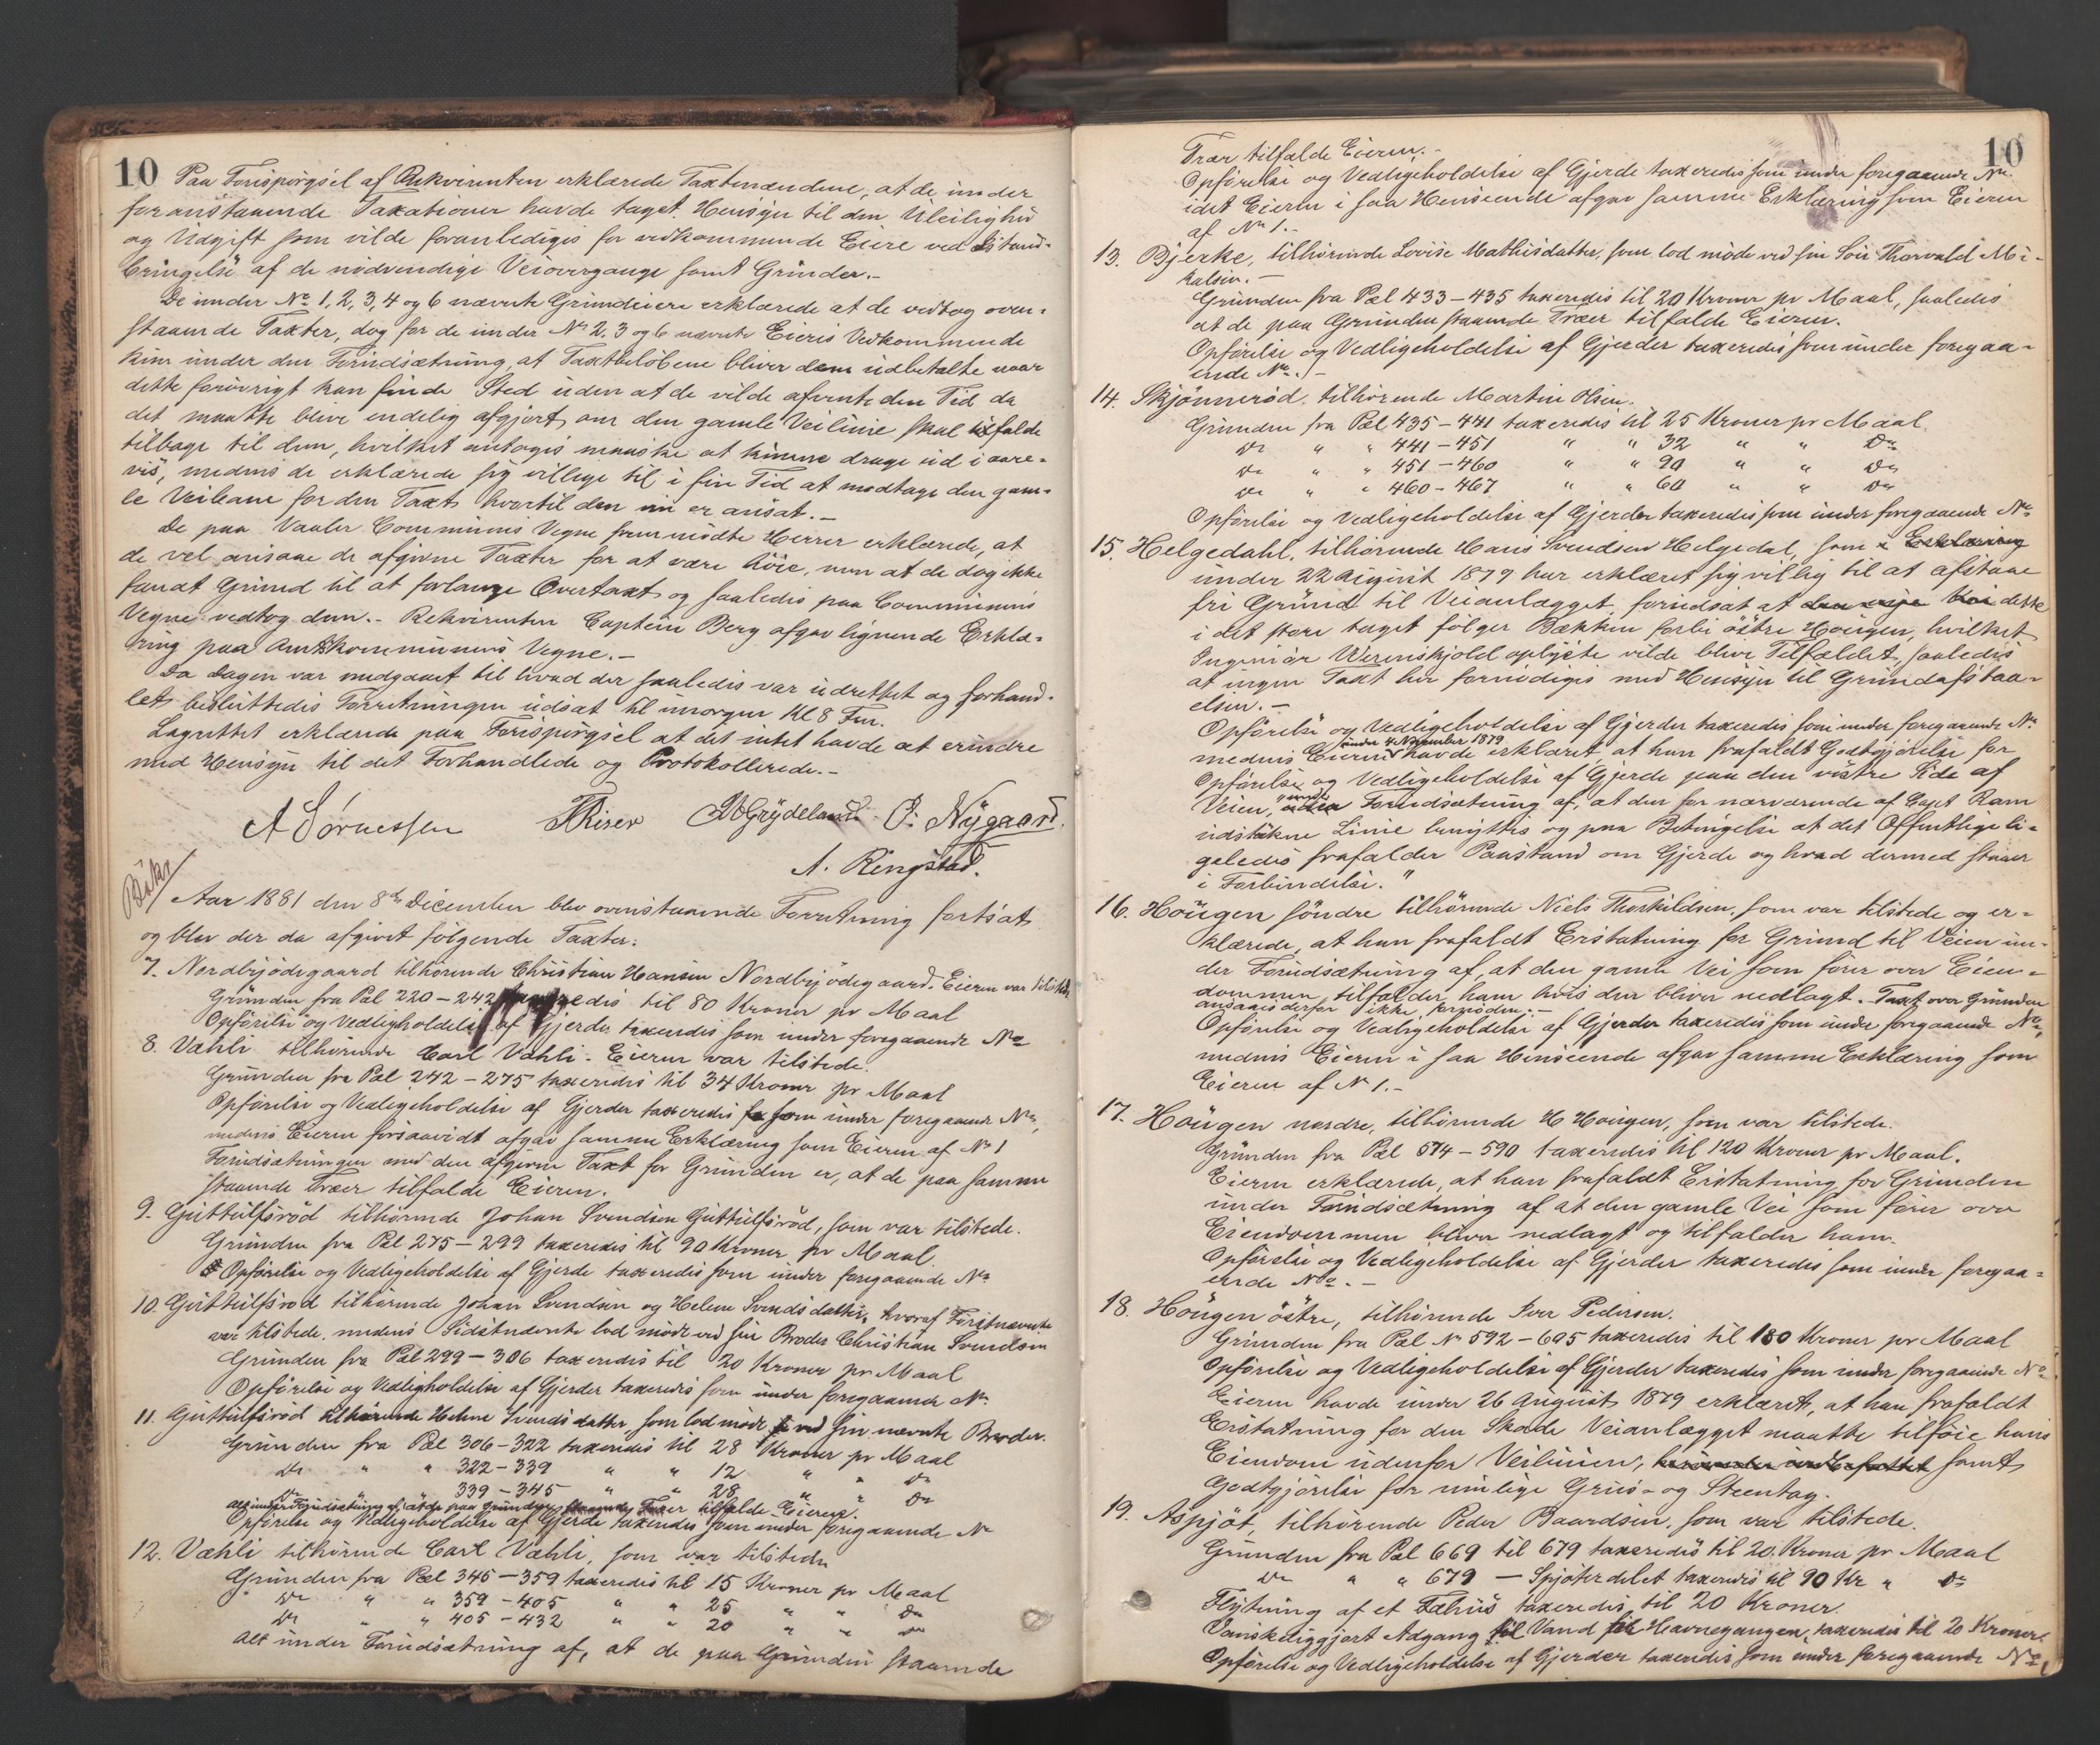 10
Paa Forespörgsel af Rekvirenten erklærede Taxtmændene, at de under
foranstaaende Taxationer havde taget Hensyn til den Uleilighed
og Udgift som vilde foranlediges for vedkommende Eiere ved Istand-
bringelse af de nödvendige Veiovergange samt Grinder.-
De under No 1, 2, 3, 4 og 6 nævnte Grundeiere erklærede at de vedtog oven-
staaende Taxter, dog for de under No 2, 3 og 6 nævnte Eieres Vedkommende
kun under den Forudsætning at Taxtbelöbene bliver dem udbetalte naar
dette forövrigt kan finde Sted uden at de vilde afvente den Tid da
det maatte blive endelig afgjort om den gamle Veilinie skal tilfalde
tilbage til dem, hvilket antoges maaske at kunne drage ud i aare-
vis, medens de erklærede sig villige til i sin Tid at modtage den gam-
le Veibane for den Taxt hvortil den nu er ansat.-
De paa Vaaler Communes Vegne fremmödte Herrer erklærede, at
de vel ansaae de afgivne Taxter for at være höie, men at de dog ikke
fandt Grund til at forlange Overtaxt og saaledes paa Communens
Vegne vedtog dem.- Rekvirenten Captein Berg afgav lignende Erklæ-
ring paa Amtskommunens Vegne.-
Da Dagen var medgaaet til hvad der saaledes var udrettet og forhand-
let besluttedes Forretningen udsat til imorgen Kl 8 Fm.
Lagrettet erklærede paa Forespörgsel at det intet havde at erindre
med Hensyn til det Forhandlede og Protokollerede.-
A Sörnessen Grydeland P. Nygaard.
A. Ringstad.
Aar 1881 den 8de December blev ovenstaaende Forretning fortsat
og blev der da afgivet fölgende Taxter:
7. Nordbyödegaard tilhörende Christian Hansen Nordbyödegaard. Eieren var tilstede
Grunden fra Pæl 220-242 taxeredes til 80 Kroner pr Maal
Opförelse og Vedligeholdelse af Gjerder taxeredes som under foregaaende No
8. Væhli tilhörende Carl Væhli. Eieren var tilstede.
Grunden fra Pæl 242-275 taxeredes til 34 Kroner pr Maal
Opförelse og Vedligeholdelse af Gjerder taxeredes som under foregaaende No,
medens Eieren forsaavidt afgav samme Erklæring som Eieren af No 1
Forudsætningen med den afgivne Taxt for Grunden er, at de paa samme
staaende Træer tilfalde Eieren.
9. Guttulfsröd tilhörende Johan Svendsen Guttulfsröd, som var tilstede.
Grunden fra Pæl 275-299 taxeredes til 90 Kroner pr Maal.
Opförelse og Vedligeholdelse af Gjerde taxeredes som under foregaaende No
10. Guttulfsröd tilhörende Johan Svendsen og Helene Svendsdatter, hvoraf Förstnævnte
var tilstede, medens Sidstnævnte lod möde ved sin Broder Christian Svendsen
Grunden fra Pæl 299-306 taxeredes til 20 Kroner pr Maal
Opförelse og Vedligeholdelse af Gjerder taxeredes som under foregaaende No
11. Guttulfsröd tilhörende Helene Svendsdatter som lod möde ved sin nævnte Broder.
Grunden fra Pæl 306-322 taxeredes til 28 Kroner pr Maal
do " " 322-339 " " 12 " " do
do 339-345 " " 28 " " do
alt under Forudsætning af, at de paa Grunden staaende Træer tilfalde Eieren.
Opförelse og Vedligeholdelse af Gjerde taxeredes som under foregaaende No
12. Væhli tilhörende Carl Væhli, som var tilstede
Grunden fra Pæl 345-359 taxeredes til 15 Kroner pr Maal
do " " 359-405 " " 25 " " do
do " " 405-432 " " 20 " " do
alt under Forudsætning af, at de paa Grunden staaende
10
Træer tilfalde Eieren.-
Opförelse og Vedligeholdelse af Gjerde taxeredes som under foregaaende No.
idet Eieren i saa Henseende afgav samme Erklæring som Eieren
af No 1.-
13. Bjerke, tilhörende Lovise Mathisdatter, som lod möde ved sin Sön Thorvald Mi-
kalsen.-
Grunden fra Pæl 433-435 taxeredes til 20 Kroner pr Maal, saaledes
at de paa Grunden staaende Træer tilfalde Eieren.
Opförelse og Vedligeholdelse af Gjerder taxeredes som under foregaa-
ende No.-
14. Skjönneröd, tilhörende Martin Olsen.
Grunden fra Pæl 435-441 taxeredes til 25 Kroner pr Maal.
do " " 441-451 " " 32 " " do
do " " 451-460 " " 90 " " do
do " " 460-467 " " 60 " " do
Opförelse og Vedligeholdelse af Gjerder taxeredes som under foregaaende No
15. Helgedahl, tilhörende Hans Svendsen Helgedal, som i Erklæring
under 22 August 1879 har erklæret sig villig til at afstaae
fri Grund til Veianlægget, forudsat at dette
i det store taget fölger Bækken forbi östre Hougen, hvilket
Ingeniör Werenskjold oplyste vilde blive Tilfældet, saaledes
at ingen Taxt her fornödiges med Hensyn til Grundafstaa-
elsen.-
Opförelse og Vedligeholdelse af Gjerder taxeredes som under foregaaende No
medens Eieren under 4 November 1879 havde erklæret, at han frafaldt Godtgjörelse for
Opförelse og Vedligeholdelse af Gjerde paa den västre Side af
Veien, "under Forudsætning af, at den for nærværende af Capt Ram
udstukne Linie benyttes og paa Betingelse at det Offentlige li-
geledes frafalder Paastand om Gjerde og hvad dermed staaer
i Forbindelse."
16. Hougen söndre tilhörende Niels Thorkildsen, som var tilstede og er-
klærede, at han frafaldt Erstatning for Grund til Veien un-
der Forudsætning af, at den gamle Vei som förer over Eien-
dommen, tilfalder ham hvis den bliver nedlagt. Taxt over Grunden
ansaaes derfor ikke fornöden.-
Opförelse og Vedligeholdelse af Gjerder taxeredes som under foregaaende No,
medens Eieren i saa Henseende afgav samme Erklæring som
Eieren af No 1.-
17. Hougen nordre, tilhörende H Hougen, som var tilstede.
Grunden fra Pæl 574-590 taxeredes til 120 Kroner pr Maal.
Eieren erklærede, at han frafaldt Erstatning for Grunden
under Forudsætning af at den gamle Vei som förer over
Eiendommen bliver nedlagt og tilfalder ham.
Opförelse og Vedligeholdelse af Gjerder taxeredes som under foregaa-
ende No.-
18. Hougen östre, tilhörende Iver Pedersen.
Grunden fra Pæl No 592-605 taxeredes til 180 Kroner pr Maal
Opförelse og Vedligeholdelse af Gjerder taxeredes som under foregaaende No
Eieren havde under 26 August 1879 erklæret, at han frafaldt
Erstatning for den Skade Veianlægget maatte tilföie hans
Eiendom udenfor Veilinien, samt
Godtgjörelse for mulige Gruus- og Steentag.
19. Aspjöt, tilhörende Peder Baardsen, som var tilstede.
Grunden fra Pæl 669 til 679 taxeredes til 20 Kroner pr Maal
do " " 679 - Spjöterdelet taxeredes til 90 Kr " do
Flytning af et Fæhus taxeredes til 20 Kroner.
Vanskeliggjort Adgang til Vand Havnegangen, taxeredes til 20 Kroner.
Opförelse og Vedligeholdelse af Gjerder taxeredes som under foregaaende No,